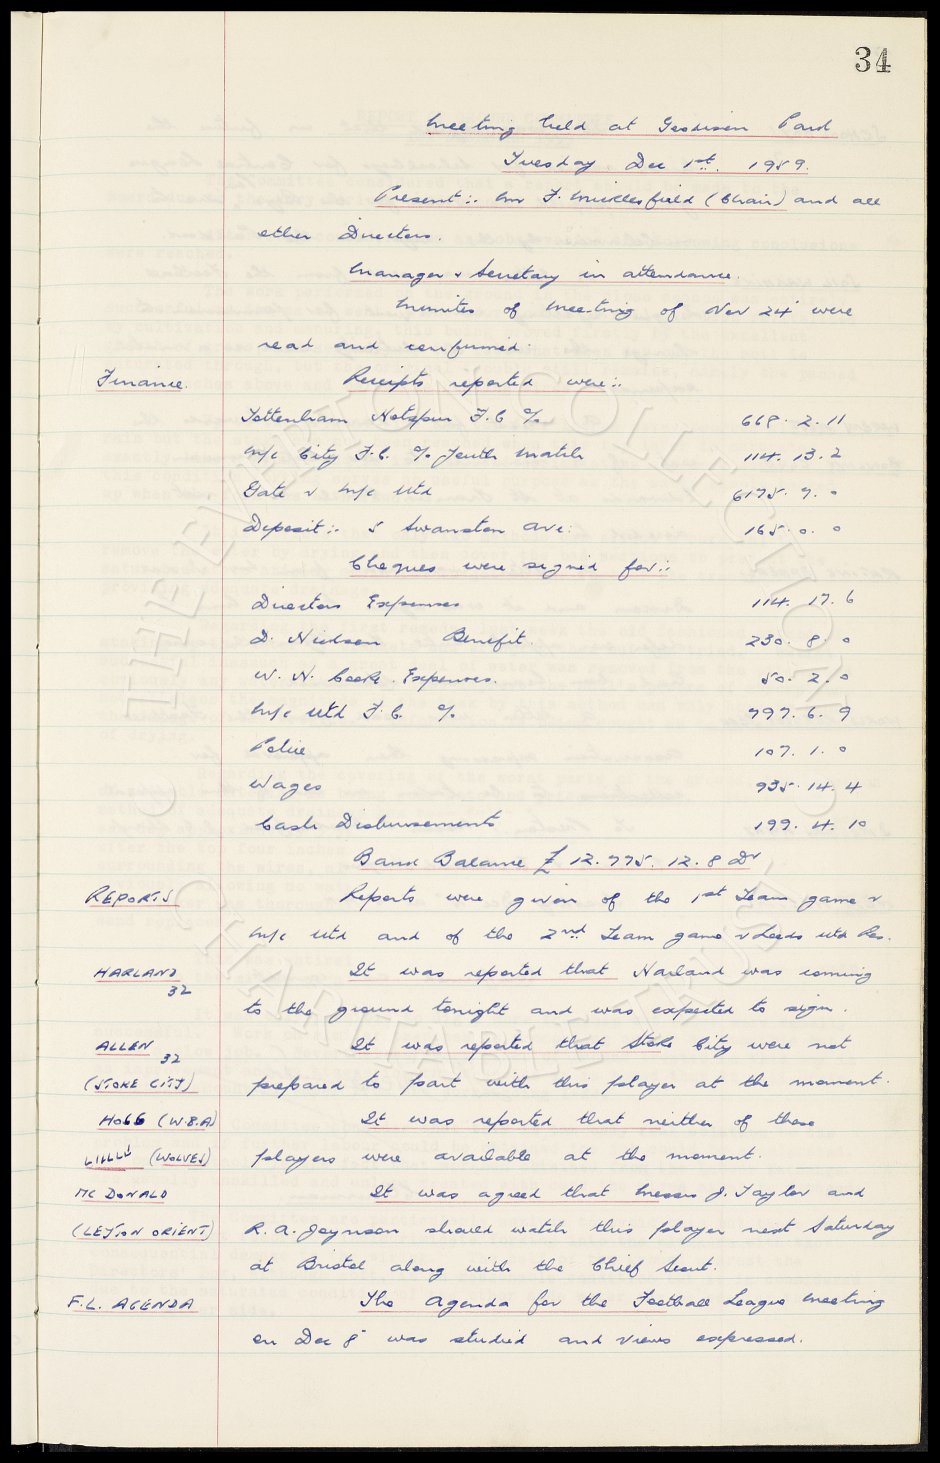 34
Meeting held at Goodison Park
Tuesday. Dec 1st. 1959.
Present:. Mr F. Micklesfield (Chair) and all
other Directors.
Manager & Secretary in attendance.
Minutes of meeting of Nov 24 were
read and confirmed.
Finance. Receipts reported were:.
Tottenham Hotspur F.C % 668. 2. 11
M/c City F.C. % Youth Match 114. 13. 2
Gate v M/c Utd 6175. 7. 0
Deposit:. 5 Swanston Ave: 165. 0. 0
Cheques were signed for:.
Directors Expenses 114. 17. 6
D. Hickson Benefit. 230. 8. 0
W. H. Cooke. Expenses. 50. 2. 0
M/c Utd F.C. % 797. 6. 9
Police 107. 1. 0
Wages 935. 14. 4
Cash Disbursements 199. 4. 10
Bank Balance £ 12.775. 12. 8 Dr
REPORTS Reports were given of the 1st Team game v
M/c Utd and of the 2nd Team game v Leeds Utd Res.
HARLAND It was reported that Harland was coming
32
to the ground tonight and was expected to sign.
ALLEN It was reported that Stoke City were not
32
(STOKE CITY) prepared to part with this player at the moment.
HOGG (W.B.A) It was reported that neither of these
LILLEY (WOLVES) players were available at the moment.
MC DONALD It was agreed that Messrs J. Taylor and
(LEYTON ORIENT) R. A. Joynson should watch this player next Saturday
at Bristol along with the Chief Scout.
F.L. AGENDA The Agenda for the Football League meeting
on Dec 8 was studied and views expressed.
THE EVERTON COLLECTION
CHARITABLE TRUST